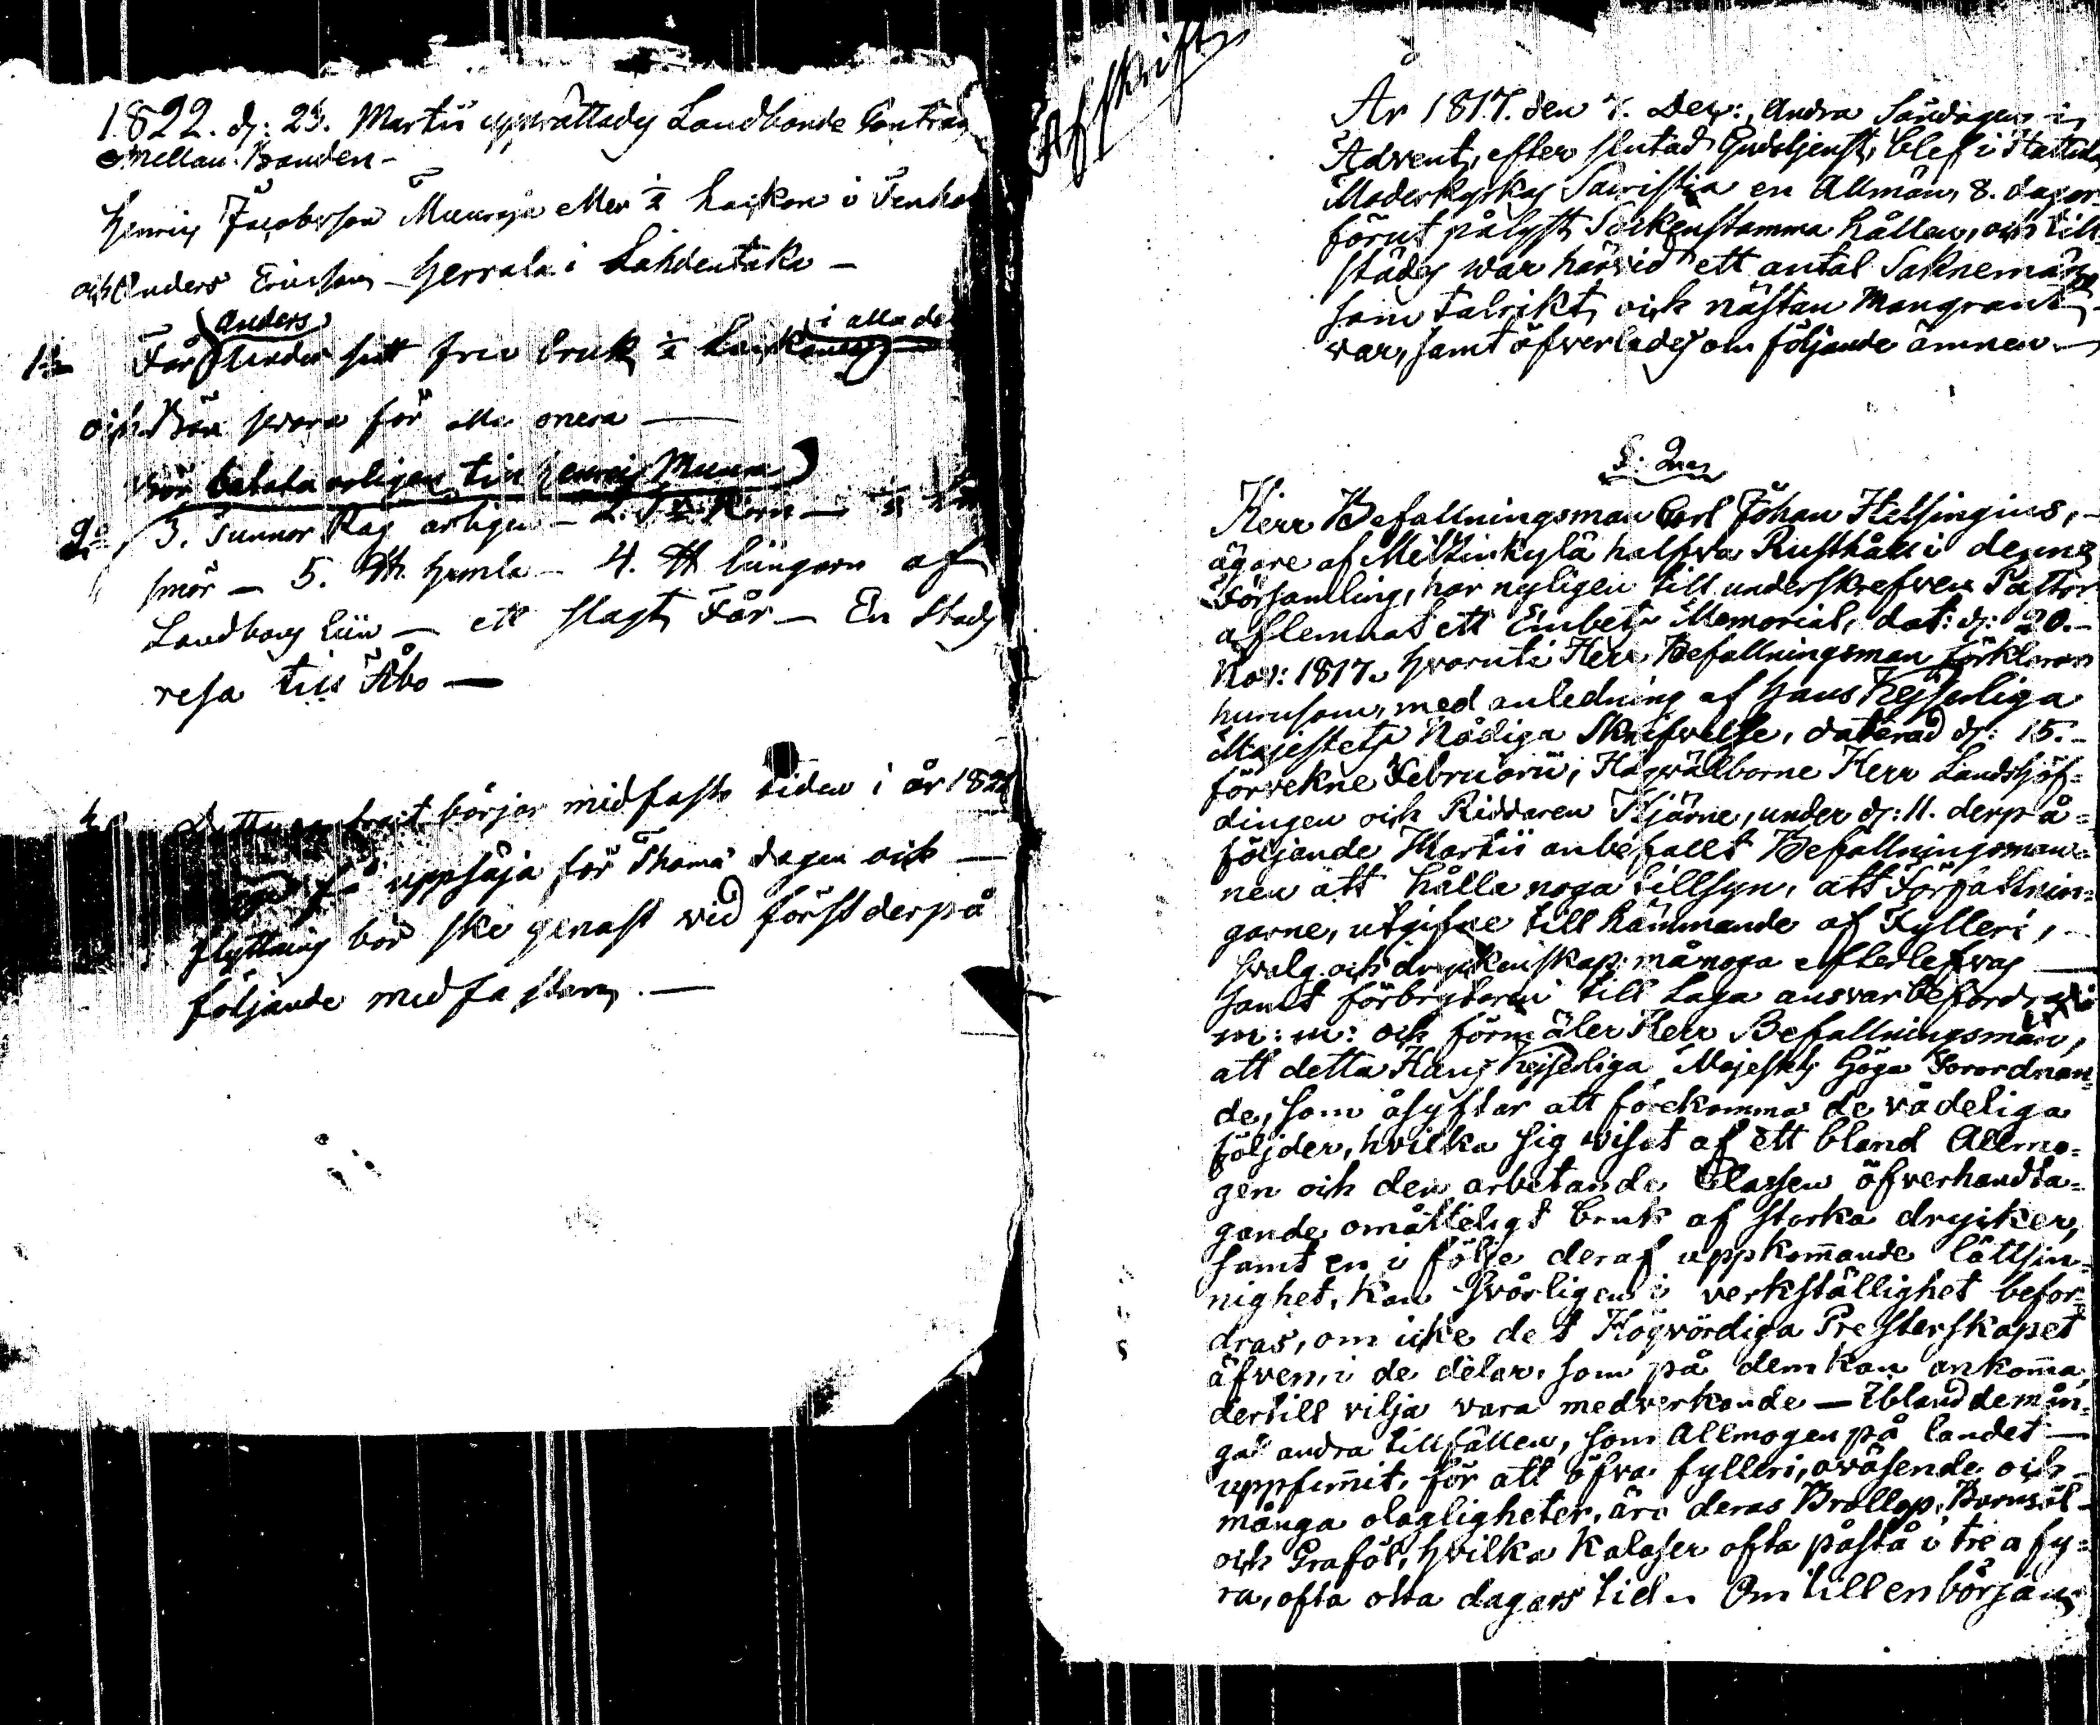 1822. d: 25. Martii upprättades Landbonde Contract
emellan Bonden
Henric Jacobsson Muuroja eller ½ Laikon i Tenhol
och Anders Ericsson Herrala i Lahdentaka —
1:o Får Anders fritt bruk ½ i alla de
och Bör svara för alla onera —
Bör betala årligen til Henric Muur
2:o 3. Tunnor Råg årligen — 2. T:r Korn —
smör — 5. ℔. humla — 4. ℔ lingarn af
Landborg liin — ett slagt Får — En Stads
resa till Åbo —
Detta contract börjar midfasto tiden i år 1822
uppsäja för Thomæ dagen och —
flyttning bör ske genast vid först derpå
följande midfastan. —
Afskrift
År 1817. den 7. Dec:, Andra Söndagen i
Advent, efter slutad Gudstjenst, blef i Hattula
Moderkyrkas Sacristia en Allmän, 8. dagar
förut pålyst Sockenstämma hållen, och till
städes war härvid ett antal Saknemän
som talrikt och nästan Mangrant
var, samt öfverlades om följande ämnen —
§. 2us
Herr Befallningsman Carl Johan Helsingius, —
ägare af Mittinkylä halfva Rusthåll i denna
Församling, har nyligen till underskrefven Pastor
aflemnat ett Embets Memorial, dat: d: 20. —
Nov: 1817. hvaruti Herr Befallningsman förklarar
hurusom, med anledning af Hans Kejserliga
Majestets Nådiga Skrifvelse, daterad d: 15. —
förvekne Februarii, Högvälborne Herr Landshöf=
dingen och Riddaren Hjärne, under d: 11. derpå=
följande Martii anbefallt Befallningsman=
nen att hålla noga tillsyn, att Författnin=
garne, utgifne till hämmande af Fylleri, —
svalg och dryckenskap må noga efterlefvas —
samt förbrytaren till Laga ansvar befordras
m: m: och förmäler Herr Befallningsman,
att detta Hans Kejserliga Majestets höga Förordnan=
de, som åsyftar att förekomma de vådeliga
följder, hvilka sig visat af ett bland Allmo=
gen och den arbetande Classen öfverhandta=
gande omåtteligt bruk af starka drycker,
samt en i följe deraf uppkom̄ande lättsin=
nighet, kan svårligen i verkställighet befor=
dras, om icke det Högvördiga Presterskapet
äfven, i de delar, som på dem kan ankom̄a,
dertill vilja vara medverkande — Ibland de mån=
ga andra tillfällen, som Allmogen på landet —
uppfun̄it, för att öfva fylleri, oväsende och
många olagligheter, äro deras Bröllop, Barnsöl
och Graföl, hvilka Kalaser ofta påstå i tre a fy=
ra, ofta åtta dagars tid. Om till en början